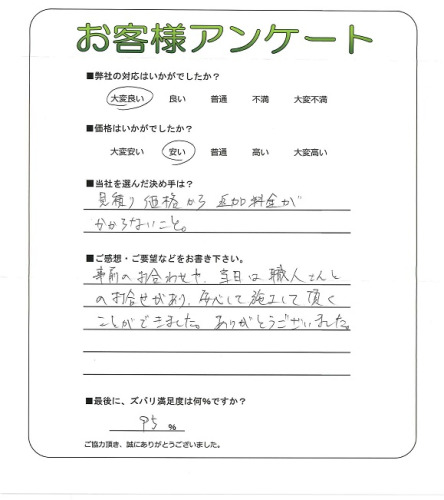 お客様アンケート
■弊社の対応はいかがでしたか？
大変良い 良い 普通 不満 大変不満
■価格はいかがでしたか？
大変安い 安い 普通 高い 大変高い
■当社を選んだ決め手は？
見積り価格から追加料金が
かからないこと。
■ご感想・ご要望などをお書き下さい。
事前のお合わせや、当日は職人さんと
のお合せがあり、安心して施工して頂く
ことができました。ありがとうございました。
■最後に、ズバリ満足度は何％ですか？
95 ％
ご協力頂き、誠にありがとうございました。